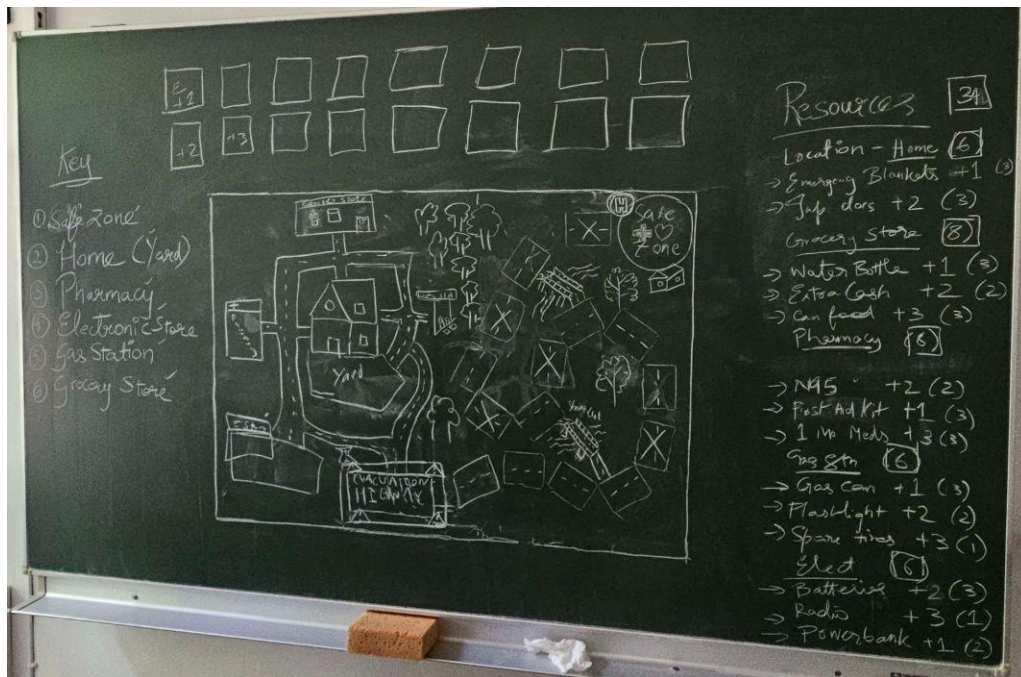 +1
+2
+3
Key
① Safe Zone
② Home (Yard)
③ Pharmacy
④ Electronic Store
⑤ Gas Station
⑥ Grocery Store
Safe
Zone
H
Yard
EVACUATION
HIGHWAY
Resources 34
Location - Home 6
→ Emergency Blankets +1 (3)
→ docs +2 (3)
Grocery Store 8
→ Water Bottle +1 (3)
→ Extra Cash +2 (2)
→ Can food +3 (3)
Pharmacy
→ N95 +2 (2)
→ First Aid Kit +1 (3)
→ 1 Mo Meds +3 (3)
Gas Stn 6
→ Gas Can +1 (3)
→ Flashlight +2 (2)
→ Spare tires +3 (1)
Elect 6
→ Batteries +2 (3)
→ Radio +3 (1)
→ Powerbank +1 (2)